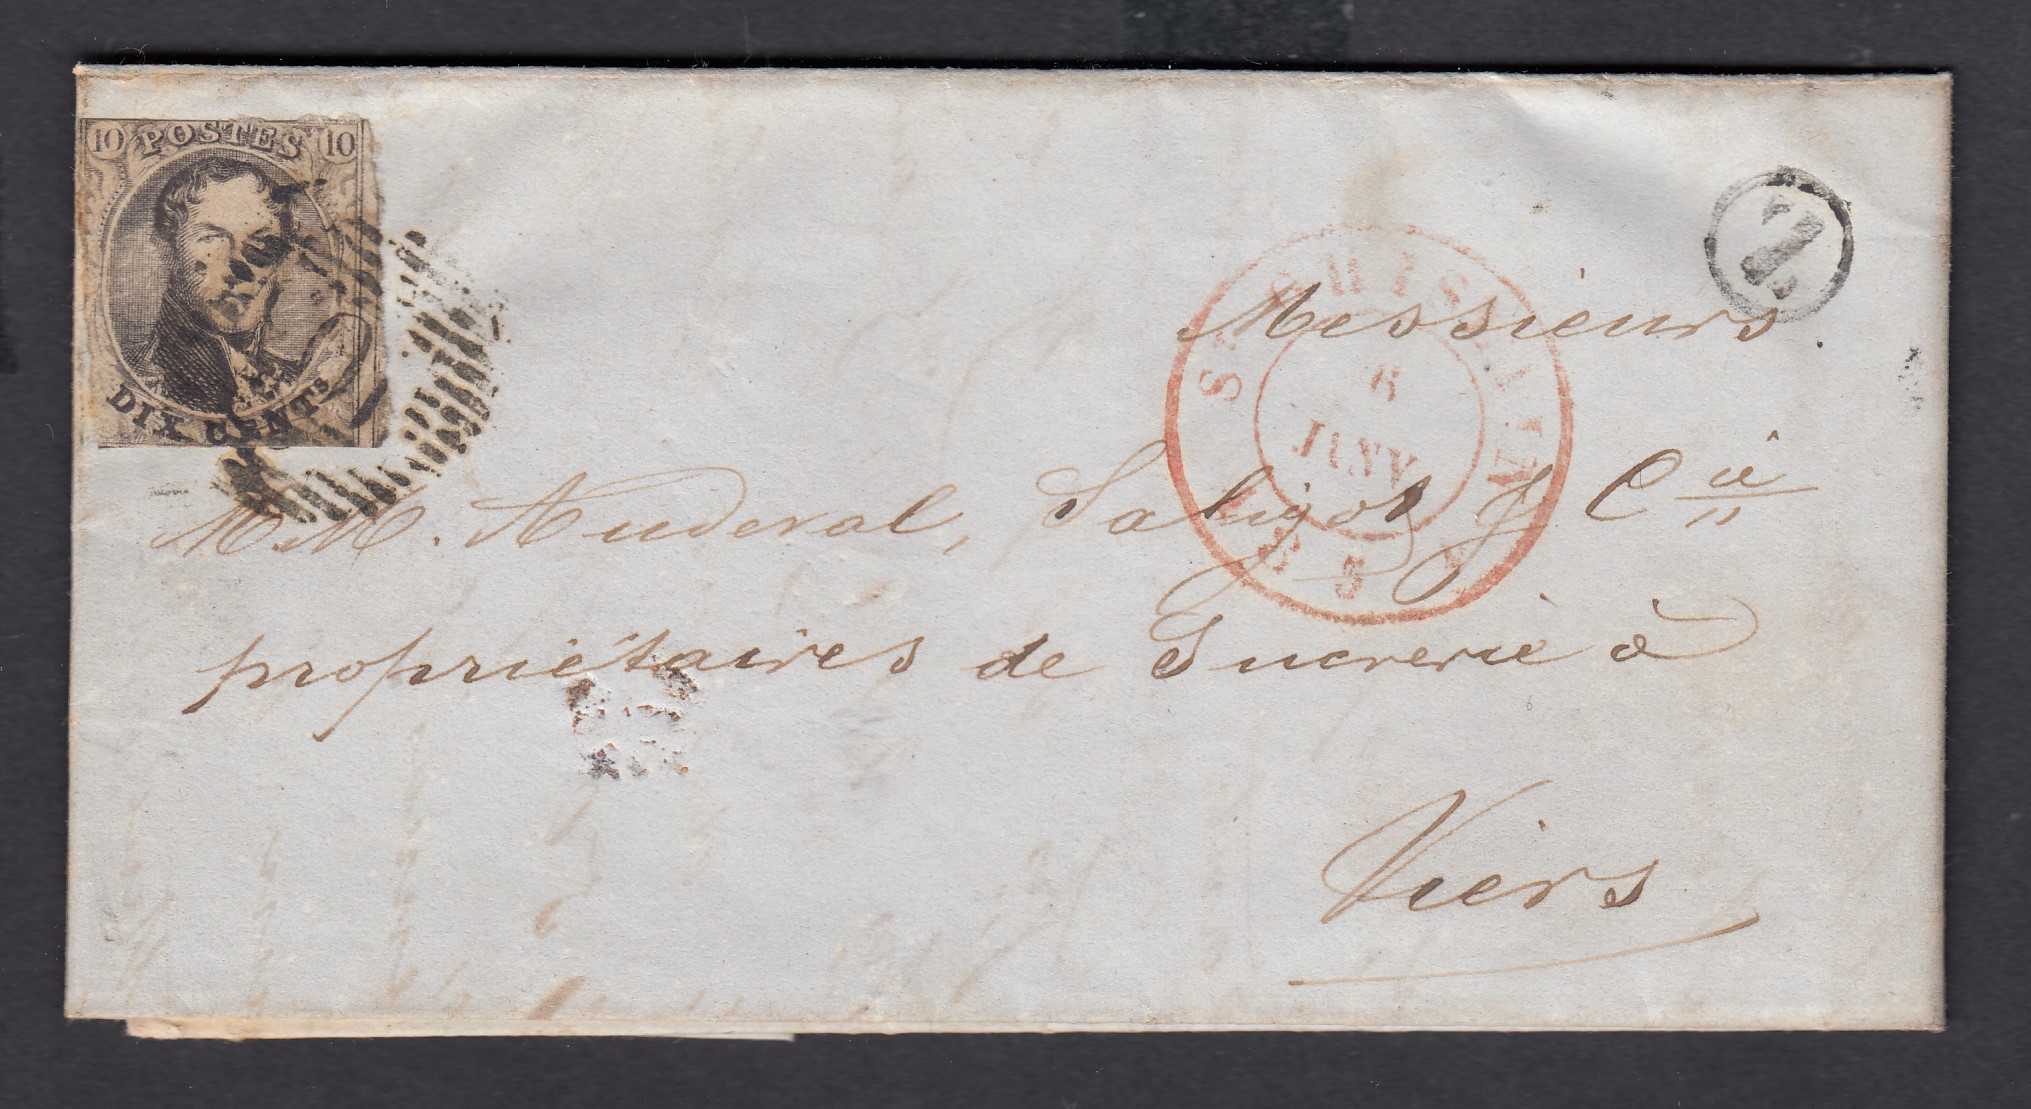 10 POSTES 10
DIX CENTS
Z
6
JANV
Messieurs
M.M. Auderal, Saligot & Cie
propriétaires de Sucrerie à
Viers